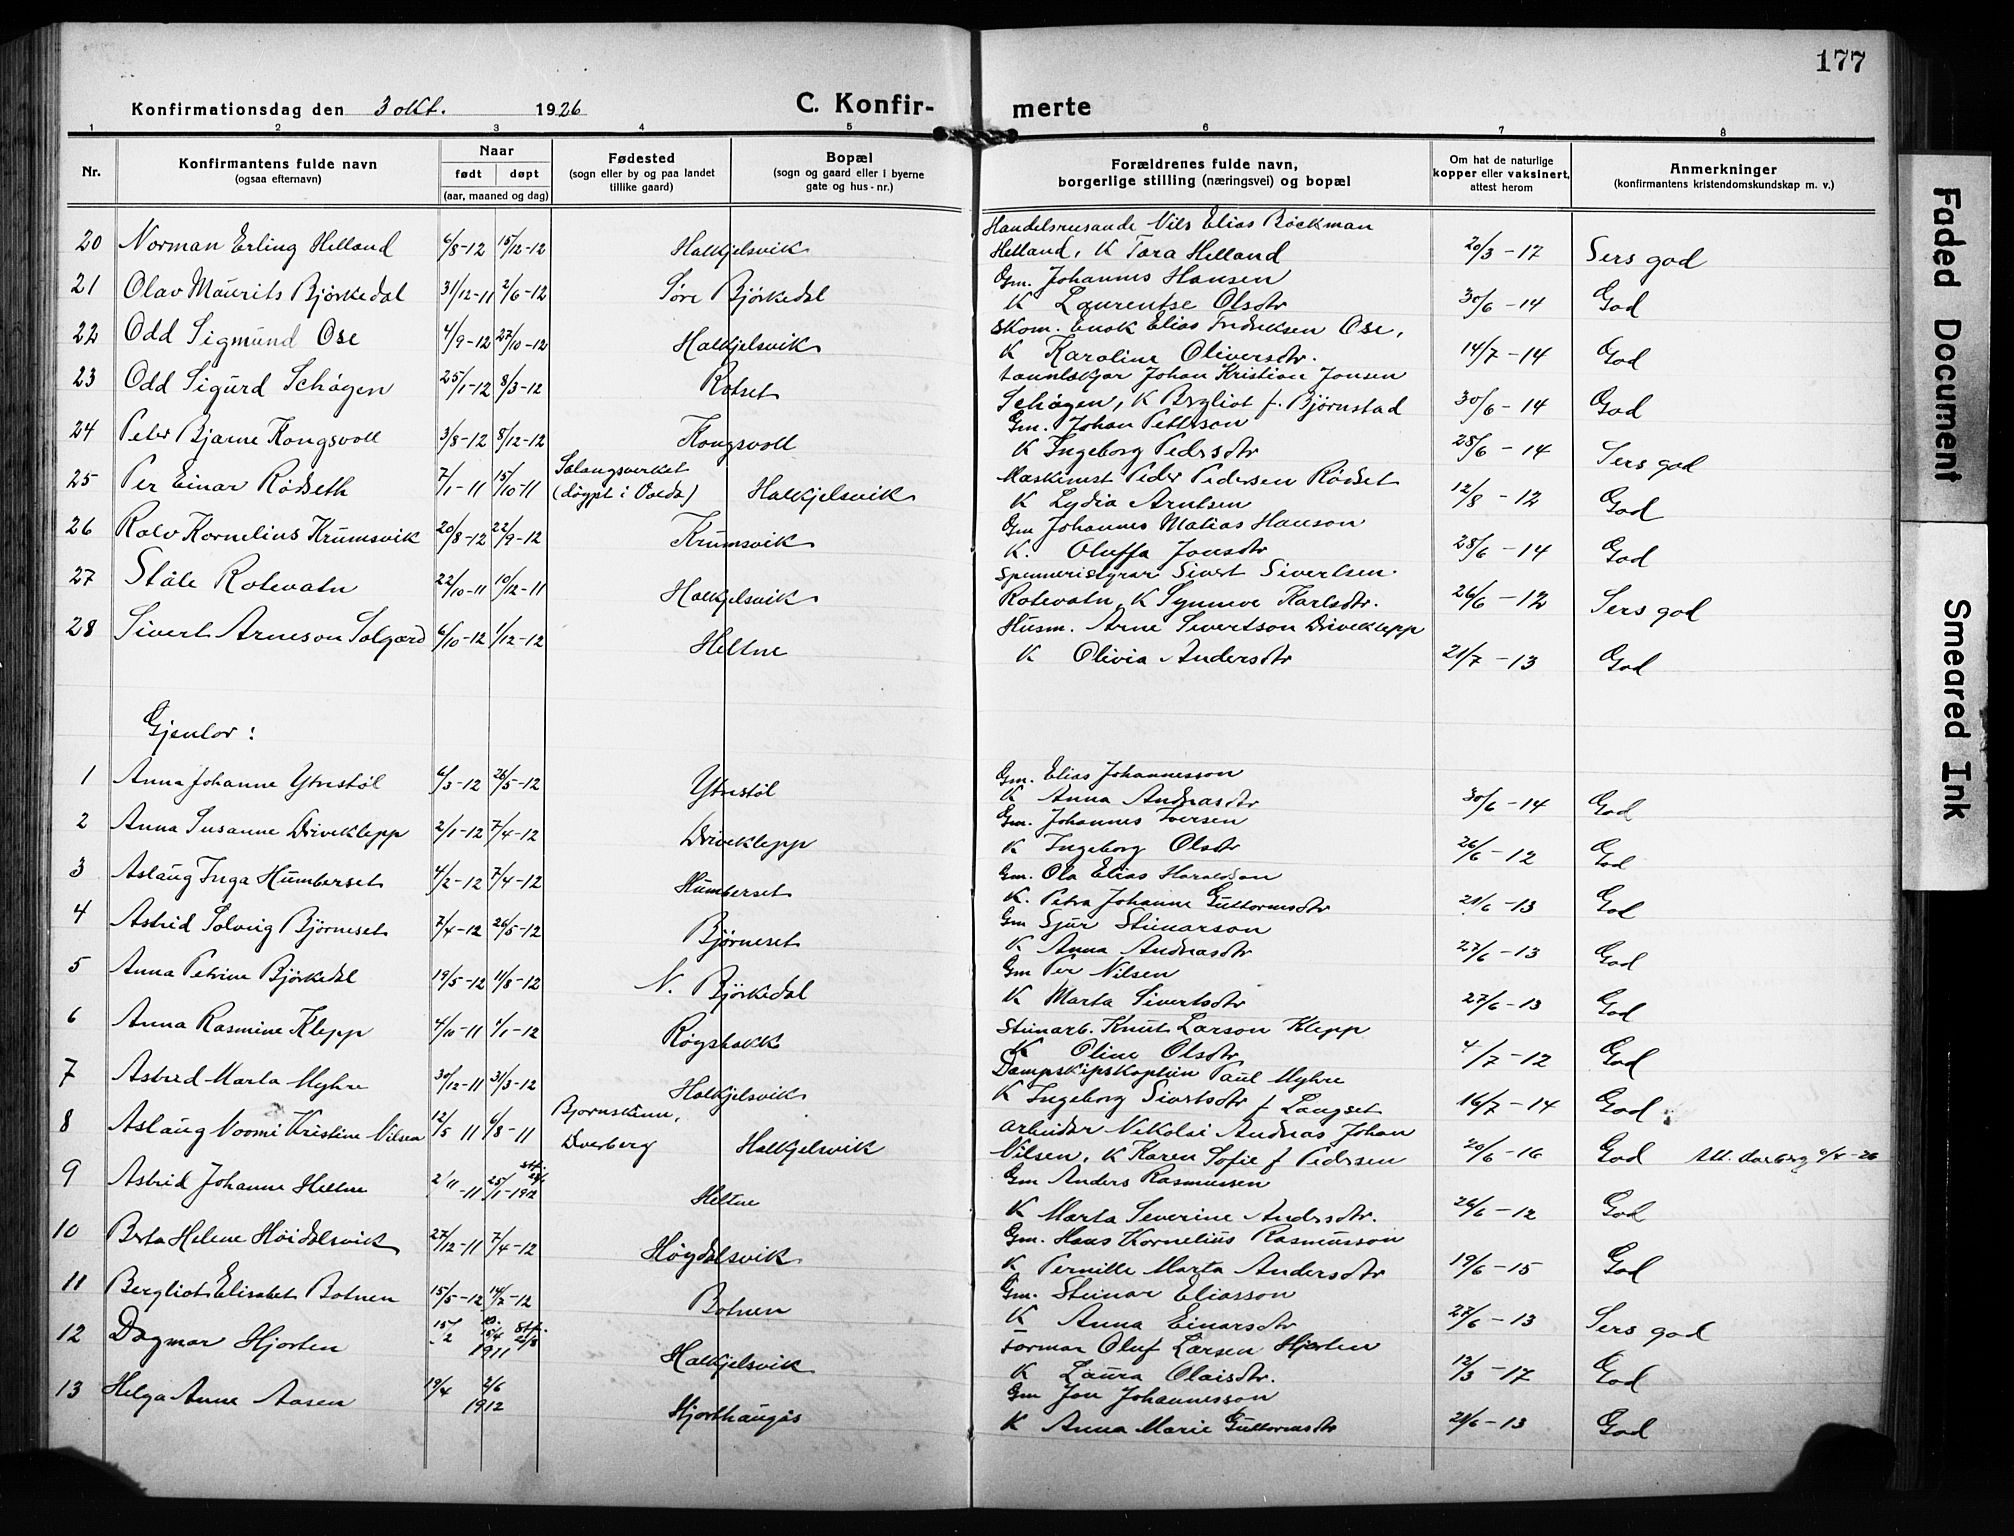 177
Konfirmationsdag den 3 okt. 1926 C. Konfir- merte
1 2 3 4 5 6 7 8
Nr. Konfirmantens fulde navn (ogsaa efternavn) Naar født døpt (aar, maaned og dag) Fødested (sogn eller by og paa landet tillike gaard) Bopæl (sogn og gaard eller i byerne gate og hus-nr.) Forældrenes fulde navn, borgerlige stilling (næringsvei) og bopæl Om hat de naturlige kopper eller vaksinert, attest herom Anmerkninger (konfirmantens kristendomskundskap m. v.)
20 Norman Erling Helland 6/8-12 15/12-12 Halkjelsvik Handelsreisande Nils Elias Böckman Helland, K Tora Helland 20/3-17 Sers god
21 Olav Maurits Bjørkedal 31/12-11 2/6-12 Søre Bjørkedal Gm. Johannes Hansen K Laurentse Olsdtr 30/6-14 God
22 Odd Sigmund Ose 4/9-12 27/10-12 Halkjelsvik Skom. Enok Elias Fredriksen Ose, K Karoline Oliversdtr. 14/7-14 God
23 Odd Sigurd Schågen 25/1-12 8/3-12 Rotset Johan Kristian Jonsen Schågen, K Bergliot f. Bjørnstad 30/6-14 God
24 Peter Bjarne Kongsvoll 3/8-12 8/12-12 Kongsvoll Gm. Johan Petterson K Ingeborg Pedersdtr 28/6-14 Sers god
25 Per Einar Rödseth 7/1-11 15/10-11 Salangsverket (døypt i Volda) Halkjelsvik Maskinist Peder Pedersen Rödset K Lydia Arntsen 12/8-12 God
26 Rolv Kornelius Krumsvik 20/8-12 22/9-12 Krumsvik Gm Johannes Matias Hanson K. Oluffa Jonsdtr 28/6-14 God
27 Ståle Rotevatn 22/10-11 10/12-11 Halkjelsvik Spenneristyrar Sivert Sivertsen Rotevatn, K Synneve Karlsdtr. 26/6-12 Sers god
28 Sivert Arneson Solgard 6/10-12 1/12-12 Heltne Husm. Arne Sivertson Driveklepp K Olivia Andersdtr 21/7-13 God
Gjentor:
1 Anna Johanne Ytrestøl 6/3-12 26/5-12 Ytrestøl Gm. Elias Johannesson K Anna Andreasdtr 30/6-14 God
2 Anna Susanne Driveklepp 2/1-12 7/4-12 Driveklepp Gm. Johannes Iversen K Ingeborg Olsdtr 26/6-12 God
3 Aslaug Inga Humberset 4/2-12 7/4-12 Humberset Gm. Ola Elias Haraldson K. Petra Johanne Guttormsdtr 21/6-13 God
4 Astrid Solveig Bjørneset 7/4-12 26/5-12 Bjørneset Gm Sjur Steinarson K Anna Andreasdtr 27/6-13 God
5 Anna Petrine Bjørkedal 19/5-12 11/8-12 N. Bjørkedal Gm Per Nilsen K Marta Sivertsdtr 27/6-13 God
6 Anna Rasmine Klepp 4/10-11 1/1-12 Røystakk Steinarb. Knut Larson Klepp K Oline Olsdtr 4/7-12 God
7 Astrid Marta Myhre 30/12-11 31/3-12 Halkjelsvik Dampskipskaptein Paul Myhre K Ingeborg Sivertsdtr f Langset 16/7-14 God
8 Aslaug Noomi Kristine Nilsen 12/5 11 6/8-11 Bjørnskinn, Dverberg Halkjelsvik Arbeidar Nikolai Andreas Johan Nilsen, K Karen Sofie f Pedersen 20/6-16 God
9 Astrid Johanne Heltne 2/11-11 25/1-1912 Heltne Gm Anders Rasmussen K Marta Severine Andersdtr. 26/6-12 God
10 Berta Helene Høidalsvik 27/12-11 7/4-12 Høydalsvik Gm. Hans Kornelius Rasmusson K Pernille Marta Andersdtr 19/6-15 God
11 Bergliot Elisabet Botnen 15/5-12 14/7-12 Botnen Gm. Steinar Eliasson K Anna Einarsdtr 27/6-13 Sers god
12 Dagmar Hjorten 15/2 1911 Halkjelsvik Formar Oluf Larsen Hjorten K Laura Olaisdtr. 12/3-17 God
13 Helga Anne Aasen 19/4 2/6 1912 Hjorthaugås Gm Jon Johannesson K Anna Marie Guttormsdtr 21/6-13 God
Faded Document
Smeared Ink